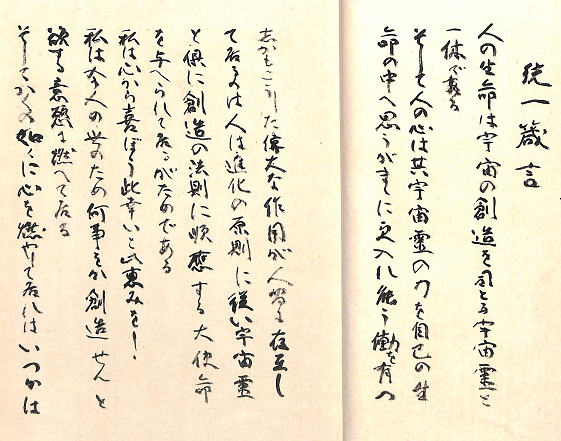 統一箴言
人の生命は宇宙の創造を司どる宇宙霊と
一体である
そして人の心は其宇宙霊の力を自己の生
命の中へ思うがまゝに受入れ能う働を有つ
しかもこうした偉大な作用が人間に存在し
て居るのは人は進化の原則に従い宇宙霊
と倶に創造の法則に順応する大使命
を与へられて居るがためである
私は心から喜ぼう此幸いと此恵みを！
私は今人の世のため何事をか創造せんと
欲する意慾に燃へて居る
そしてかくの如くに心を燃やして居ればいつかは